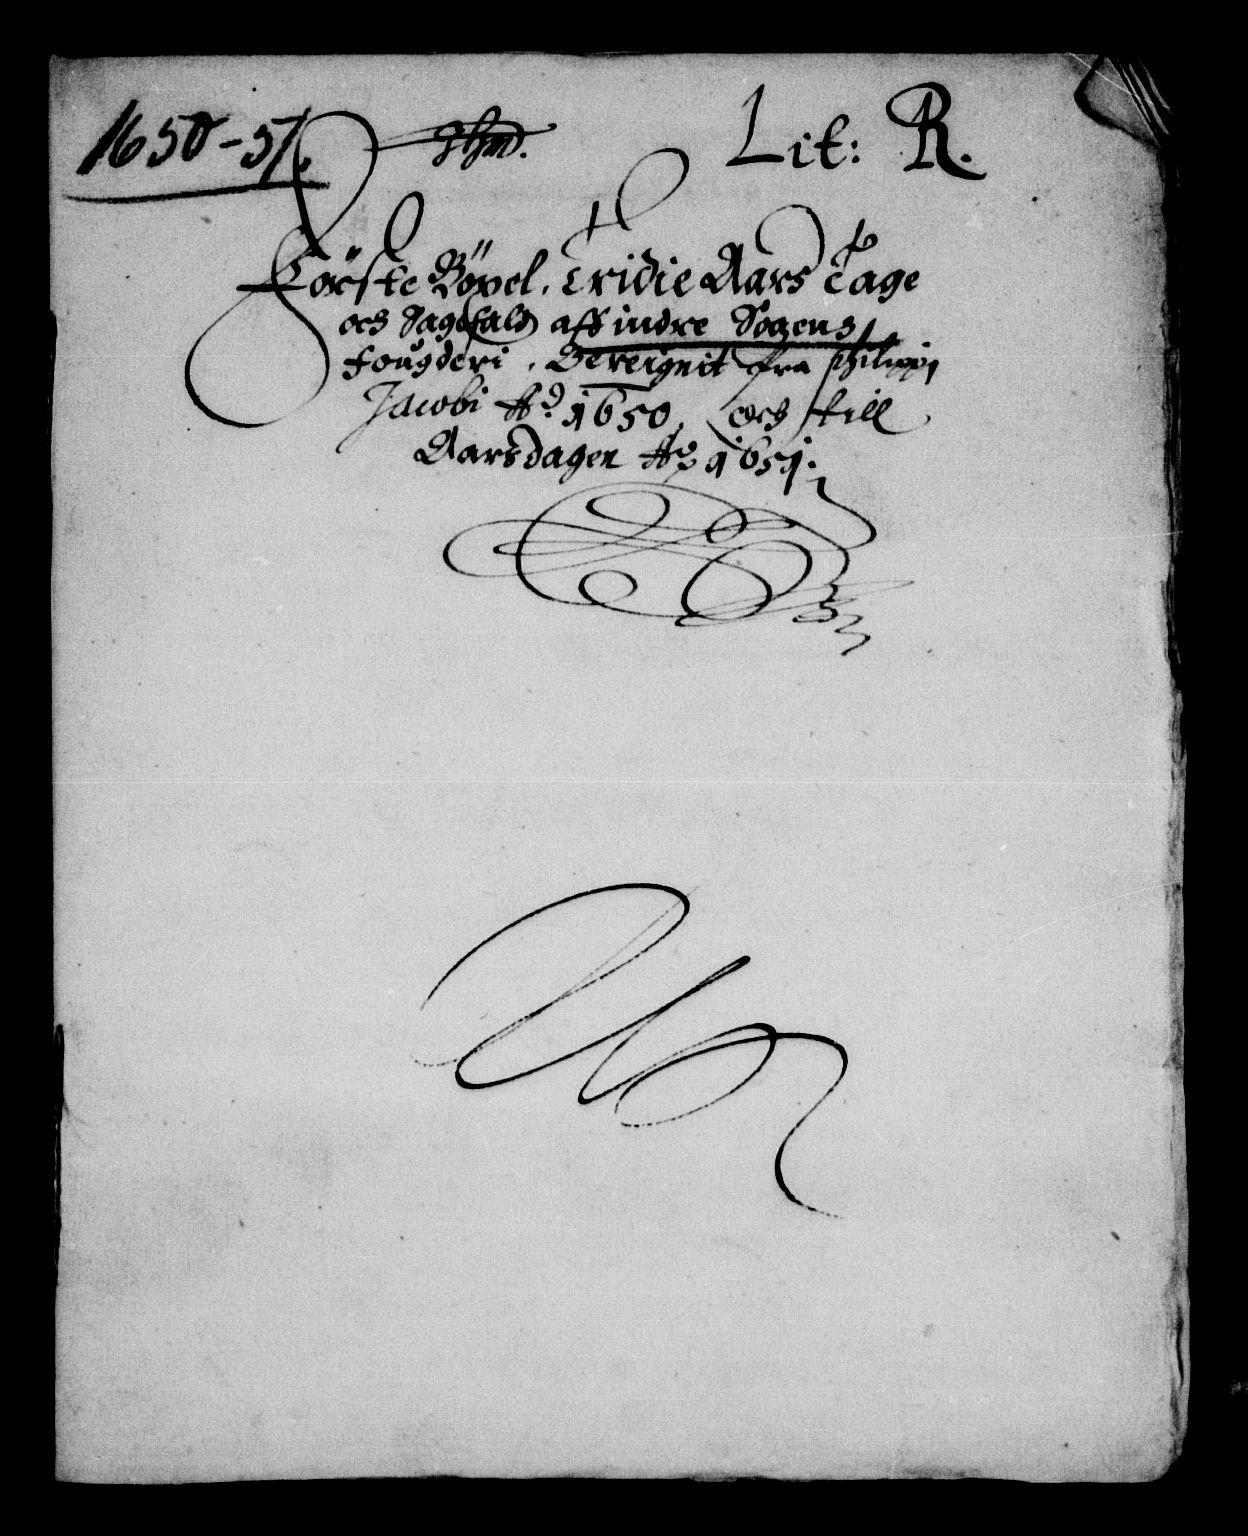 1650-51.
Lit: R.
Förste Böxel, Tridie Aars Tage
och Sagefald aff indre Sogens
fougderi, Bereignit fra Philippi
Jacobi Aō. 1650, och till
Aarsdagen Aō 1651.